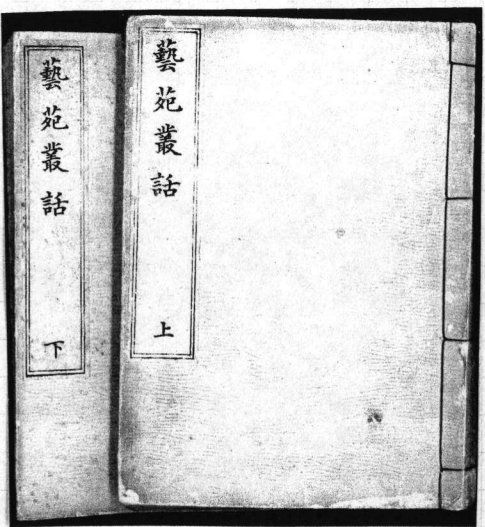 藝苑叢話 上
藝苑叢話 下